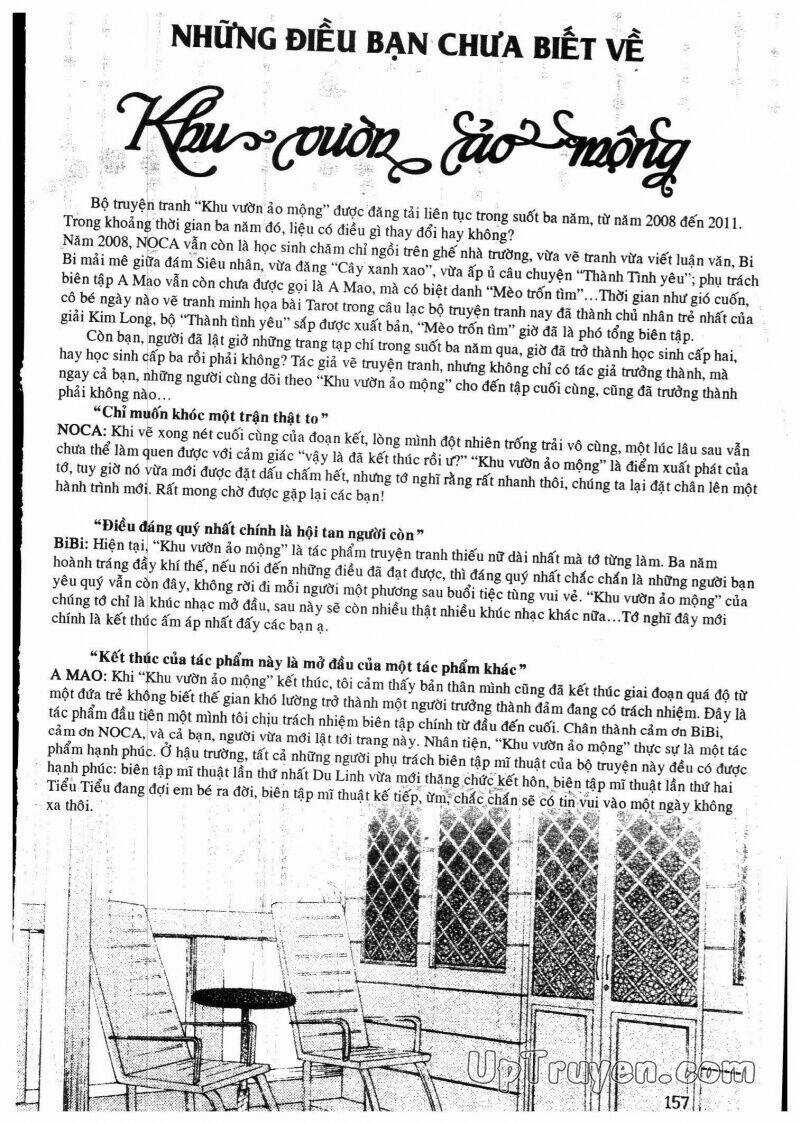 NHỮNG ĐIỀU BẠN CHƯA BIẾT VỀ
Khu vườn ảo mộng
Bộ truyện tranh “Khu vườn ảo mộng” được đăng tải liên tục trong suốt ba năm, từ năm 2008 đến 2011.
Trong khoảng thời gian ba năm đó, liệu có điều gì thay đổi hay không?
Năm 2008, NOCA vẫn còn là học sinh chăm chỉ ngồi trên ghế nhà trường, vừa vẽ tranh vừa viết luận văn, Bi
Bi mải mê giữa đám Siêu nhân, vừa đăng “Cây xanh xao”, vừa ấp ủ câu chuyện “Thành Tình yêu”; phụ trách
biên tập A Mao vẫn còn chưa được gọi là A Mao, mà có biệt danh “Mèo trốn tìm”...Thời gian như gió cuốn,
cô bé ngày nào vẽ tranh minh họa bài Tarot trong câu lạc bộ truyện tranh nay đã thành chủ nhân trẻ nhất của
giải Kim Long, bộ “Thành tình yêu” sắp được xuất bản, “Mèo trốn tìm” giờ đã là phó tổng biên tập.
Còn bạn, người đã lật giở những trang tạp chí trong suốt ba năm qua, giờ đã trở thành học sinh cấp hai,
hay học sinh cấp ba rồi phải không? Tác giả vẽ truyện tranh, nhưng không chỉ có tác giả trưởng thành, mà
ngay cả bạn, những người cùng dõi theo “Khu vườn ảo mộng” cho đến tập cuối cùng, cũng đã trưởng thành
phải không nào...
“Chỉ muốn khóc một trận thật to”
NOCA: Khi vẽ xong nét cuối cùng của đoạn kết, lòng mình đột nhiên trống trải vô cùng, một lúc lâu sau vẫn
chưa thể làm quen được với cảm giác “vậy là đã kết thúc rồi ư?” “Khu vườn ảo mộng” là điểm xuất phát của
tớ, tuy giờ nó vừa mới được đặt dấu chấm hết, nhưng tớ nghĩ rằng rất nhanh thôi, chúng ta lại đặt chân lên một
hành trình mới. Rất mong chờ được gặp lại các bạn!
“Điều đáng quý nhất chính là hội tan người còn”
BiBi: Hiện tại, “Khu vườn ảo mộng” là tác phẩm truyện tranh thiếu nữ dài nhất mà tớ từng làm. Ba năm
hoành tráng đầy khí thế, nếu nói đến những điều đã đạt được, thì đáng quý nhất chắc chắn là những người bạn
yêu quý vẫn còn đây, không rời đi mỗi người một phương sau buổi tiệc tùng vui vẻ. “Khu vườn ảo mộng” của
chúng tớ chỉ là khúc nhạc mở đầu, sau này sẽ còn nhiều thật nhiều khúc nhạc khác nữa...Tớ nghĩ đây mới
chính là kết thúc ấm áp nhất đấy các bạn ạ.
“Kết thúc của tác phẩm này là mở đầu của một tác phẩm khác”
A MAO: Khi “Khu vườn ảo mộng” kết thúc, tôi cảm thấy bản thân mình cũng đã kết thúc giai đoạn quá độ từ
một đứa trẻ không biết thế gian khó lường trở thành một người trưởng thành đảm đang có trách nhiệm. Đây là
tác phẩm đầu tiên một mình tôi chịu trách nhiệm biên tập chính từ đầu đến cuối. Chân thành cảm ơn BiBi,
cảm ơn NOCA, và cả bạn, người vừa mới lật tới trang này. Nhân tiện, “Khu vườn ảo mộng” thực sự là một tác
phẩm hạnh phúc. Ở hậu trường, tất cả những người phụ trách biên tập mĩ thuật của bộ truyện này đều có được
hạnh phúc: biên tập mĩ thuật lần thứ nhất Du Linh vừa mới thăng chức kết hôn, biên tập mĩ thuật lần thứ hai
Tiểu Tiểu đang đợi em bé ra đời, biên tập mĩ thuật kế tiếp, ừm, chắc chắn sẽ có tin vui vào một ngày không
xa thôi.
UpTruyen.com
157